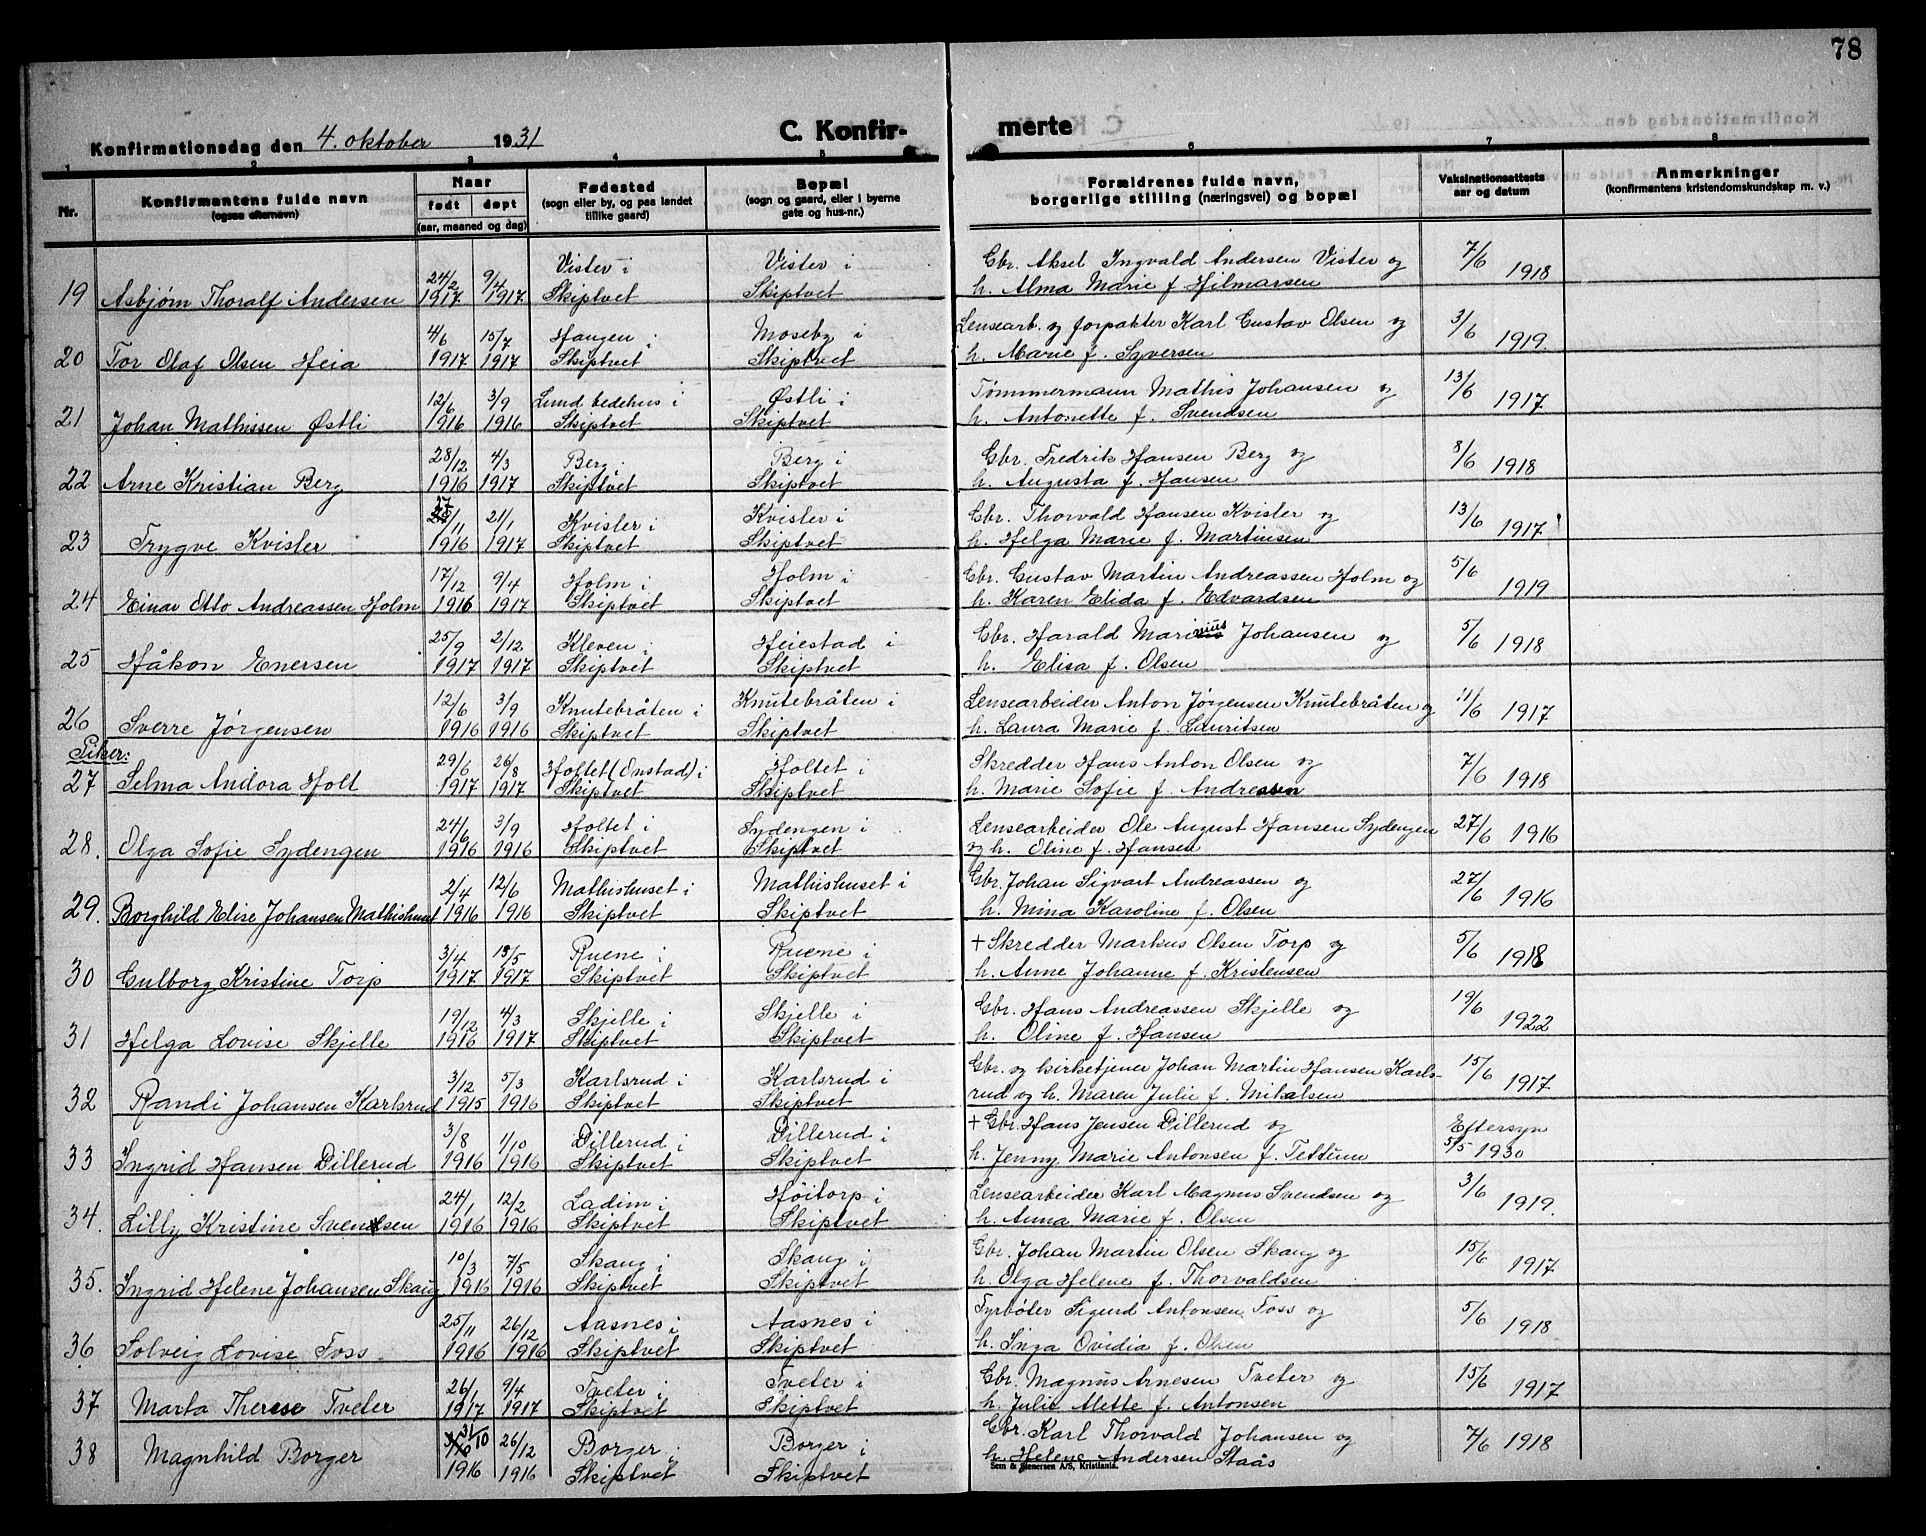 78
Konfirmationsdag den 4. oktober 1931
C. Konfir-
merte
1 2 3 4 5 6 7 8
Nr. Konfirmantens fulde navn (ogsaa efternavn) Naar født døpt (aar, maaned og dag) Fødested (sogn eller by, og paa landet tillike gaard) Bopæl (sogn og gaard, eller i byerne gate og hus-nr.) Forældrenes fulde navn, borgerlige stilling (næringsvei) og bopæl Vaksinationsattests aar og datum Anmerkninger (konfirmantens kristendomskundskap m. v.)
24/2 9/4 Vister i Vister i Gbr. Aksel Ingvald Andersen Vister og 7/6
19 Asbjørn Thoralf Andersen 1917 1917 Skiptvet Skiptvet h. Alma Marie f. Hilmarsen 1918
4/6 15/7 Haugen i Moseby i Lensearb. og forpakter Karl Gustav Olsen og 3/6
20 Tor Olaf Olsen Heia 1917 1917 Skiptvet Skiptvet h. Marie f. Syversen 1919.
12/6 3/9 Lund bedehus i Østli i Tømmermann Mathis Johansen og 13/6
21 Johan Mathissen Østli 1916 1916 Skiptvet Skiptvet h. Antonette f. Svendsen 1917.
28/12 4/3 Berg i Berg i Gbr. Fredrik Hansen Berg og 8/6
22 Arne Kristian Berg 1916 1917 Skiptvet Skiptvet h. Augusta f. Hansen 1918
27/11 21/1 Kvister i Kvister i Gbr. Thorvald Hansen Kvister og 13/6
23 Trygve Kvister 1916 1917 Skiptvet Skiptvet h. Helga Marie f. Martinsen 1917
17/12 9/4 Holm i Holm i Gbr. Gustav Martin Andreassen Holm og 5/6
24 Einar Otto Andreassen Holm 1916 1917 Skiptvet Skiptvet h. Karen Elida f. Edvardsen 1919
25/9 2/12 Kleven i Heiestad i Gbr. Harald Marinius Johansen og 5/6
25 Håkon Enersen 1917 1917 Skiptvet Skiptvet h. Elisa f. Olsen 1918
12/6 3/9 Knutebråten i Knutebråten i Lensearbeider Anton Jørgensen Knutebråten og 11/6
26 Sverre Jørgensen 1916 1916 Skiptvet Skiptvet h. Laura Marie f. Lauritsen 1917
Piker:
29/6 26/8 Holtet (Onstad) i Holtet i Skredder Hans Anton Olsen og 7/6
27 Selma Andora Holt 1917 1917 Skiptvet Skiptvet h. Marie Sofie f. Andressen 1918
24/6 3/9 Holtet i Sydengen i Lensearbeider Ole August Hansen Sydengen 27/6
28. Olga Sofie Sydengen 1916 1916 Skiptvet Skiptvet og h. Oline f. Hansen 1916
2/4 12/6 Mathishuset i Mathishuset i Gbr. Johan Sigvart Andreassen og 27/6
29. Borghild Elise Johansen Mathishuset 1916 1916 Skiptvet Skiptvet h. Mina Karoline f. Olsen 1916
3/4 13/5 Ruene i Ruene i + Skredder Markus Olsen Torp og 5/6
30 Gulborg Kristine Torp 1917 1917 Skiptvet Skiptvet h. Anne Johanne f. Kristensen 1918
19/12 4/3 Skjelle i Skjelle i Gbr. Hans Andreassen Skjelle og 19/6
31 Helga Lovise Skjelle 1916 1917 Skiptvet Skiptvet h. Oline f. Hansen 1922
3/12 5/3 Karlsrud i Karlsrud i Gbr. og kirketjener Johan Martin Hansen Karls- 15/6
32 Randi Johansen Karlsrud 1915 1916 Skiptvet Skiptvet rud og h. Maren Julie f. Mikalsen 1917
3/8 1/10 Dillerud i Dillerud i + Gbr. Hans Jensen Dillerud og Eftersyn
33 Ingrid Hansen Dillerud 1916 1916 Skiptvet Skiptvet h. Jenny Marie Antonsen f. Tettum 5/5 1930
24/1 12/2 Ladim i Höitorp i Lensearbeider Karl Magnus Svendsen og 3/6
34. Lilly Kristine Svendsen 1916 1916 Skiptvet Skiptvet h. Anna Marie f. Olsen 1919.
10/3 7/5 Skaug i Skaug i Gbr. Johan Martin Olsen Skaug og 15/6
35. Ingrid Helene Johansen Skaug 1916 1916 Skiptvet Skiptvet h. Olga Helene f. Thorvaldsen 1917
25/11 26/12 Aasnes i Aasnes i Fyrbøter Sigurd Antonsen Foss og 5/6
36 Solveig Lovise Foss 1916 1916 Skiptvet Skiptvet h. Inga Ovidia f. Olsen 1918
26/1 9/4 Tveter i Tveter i Gbr. Magnus Arnesen Tveter og 15/6
37 Marta Therese Tveter 1917 1917 Skiptvet Skiptvet h. Julie Alette f. Antonsen 1917
31/10 26/12 Borger i Borger i Gbr. Karl Thorvald Johansen og 7/6 1918
38 Magnhild Borger 1916 1916 Skiptvet Skiptvet h. Helene Andersen Staås
Sem & Stenersen A/S, Kristiania.